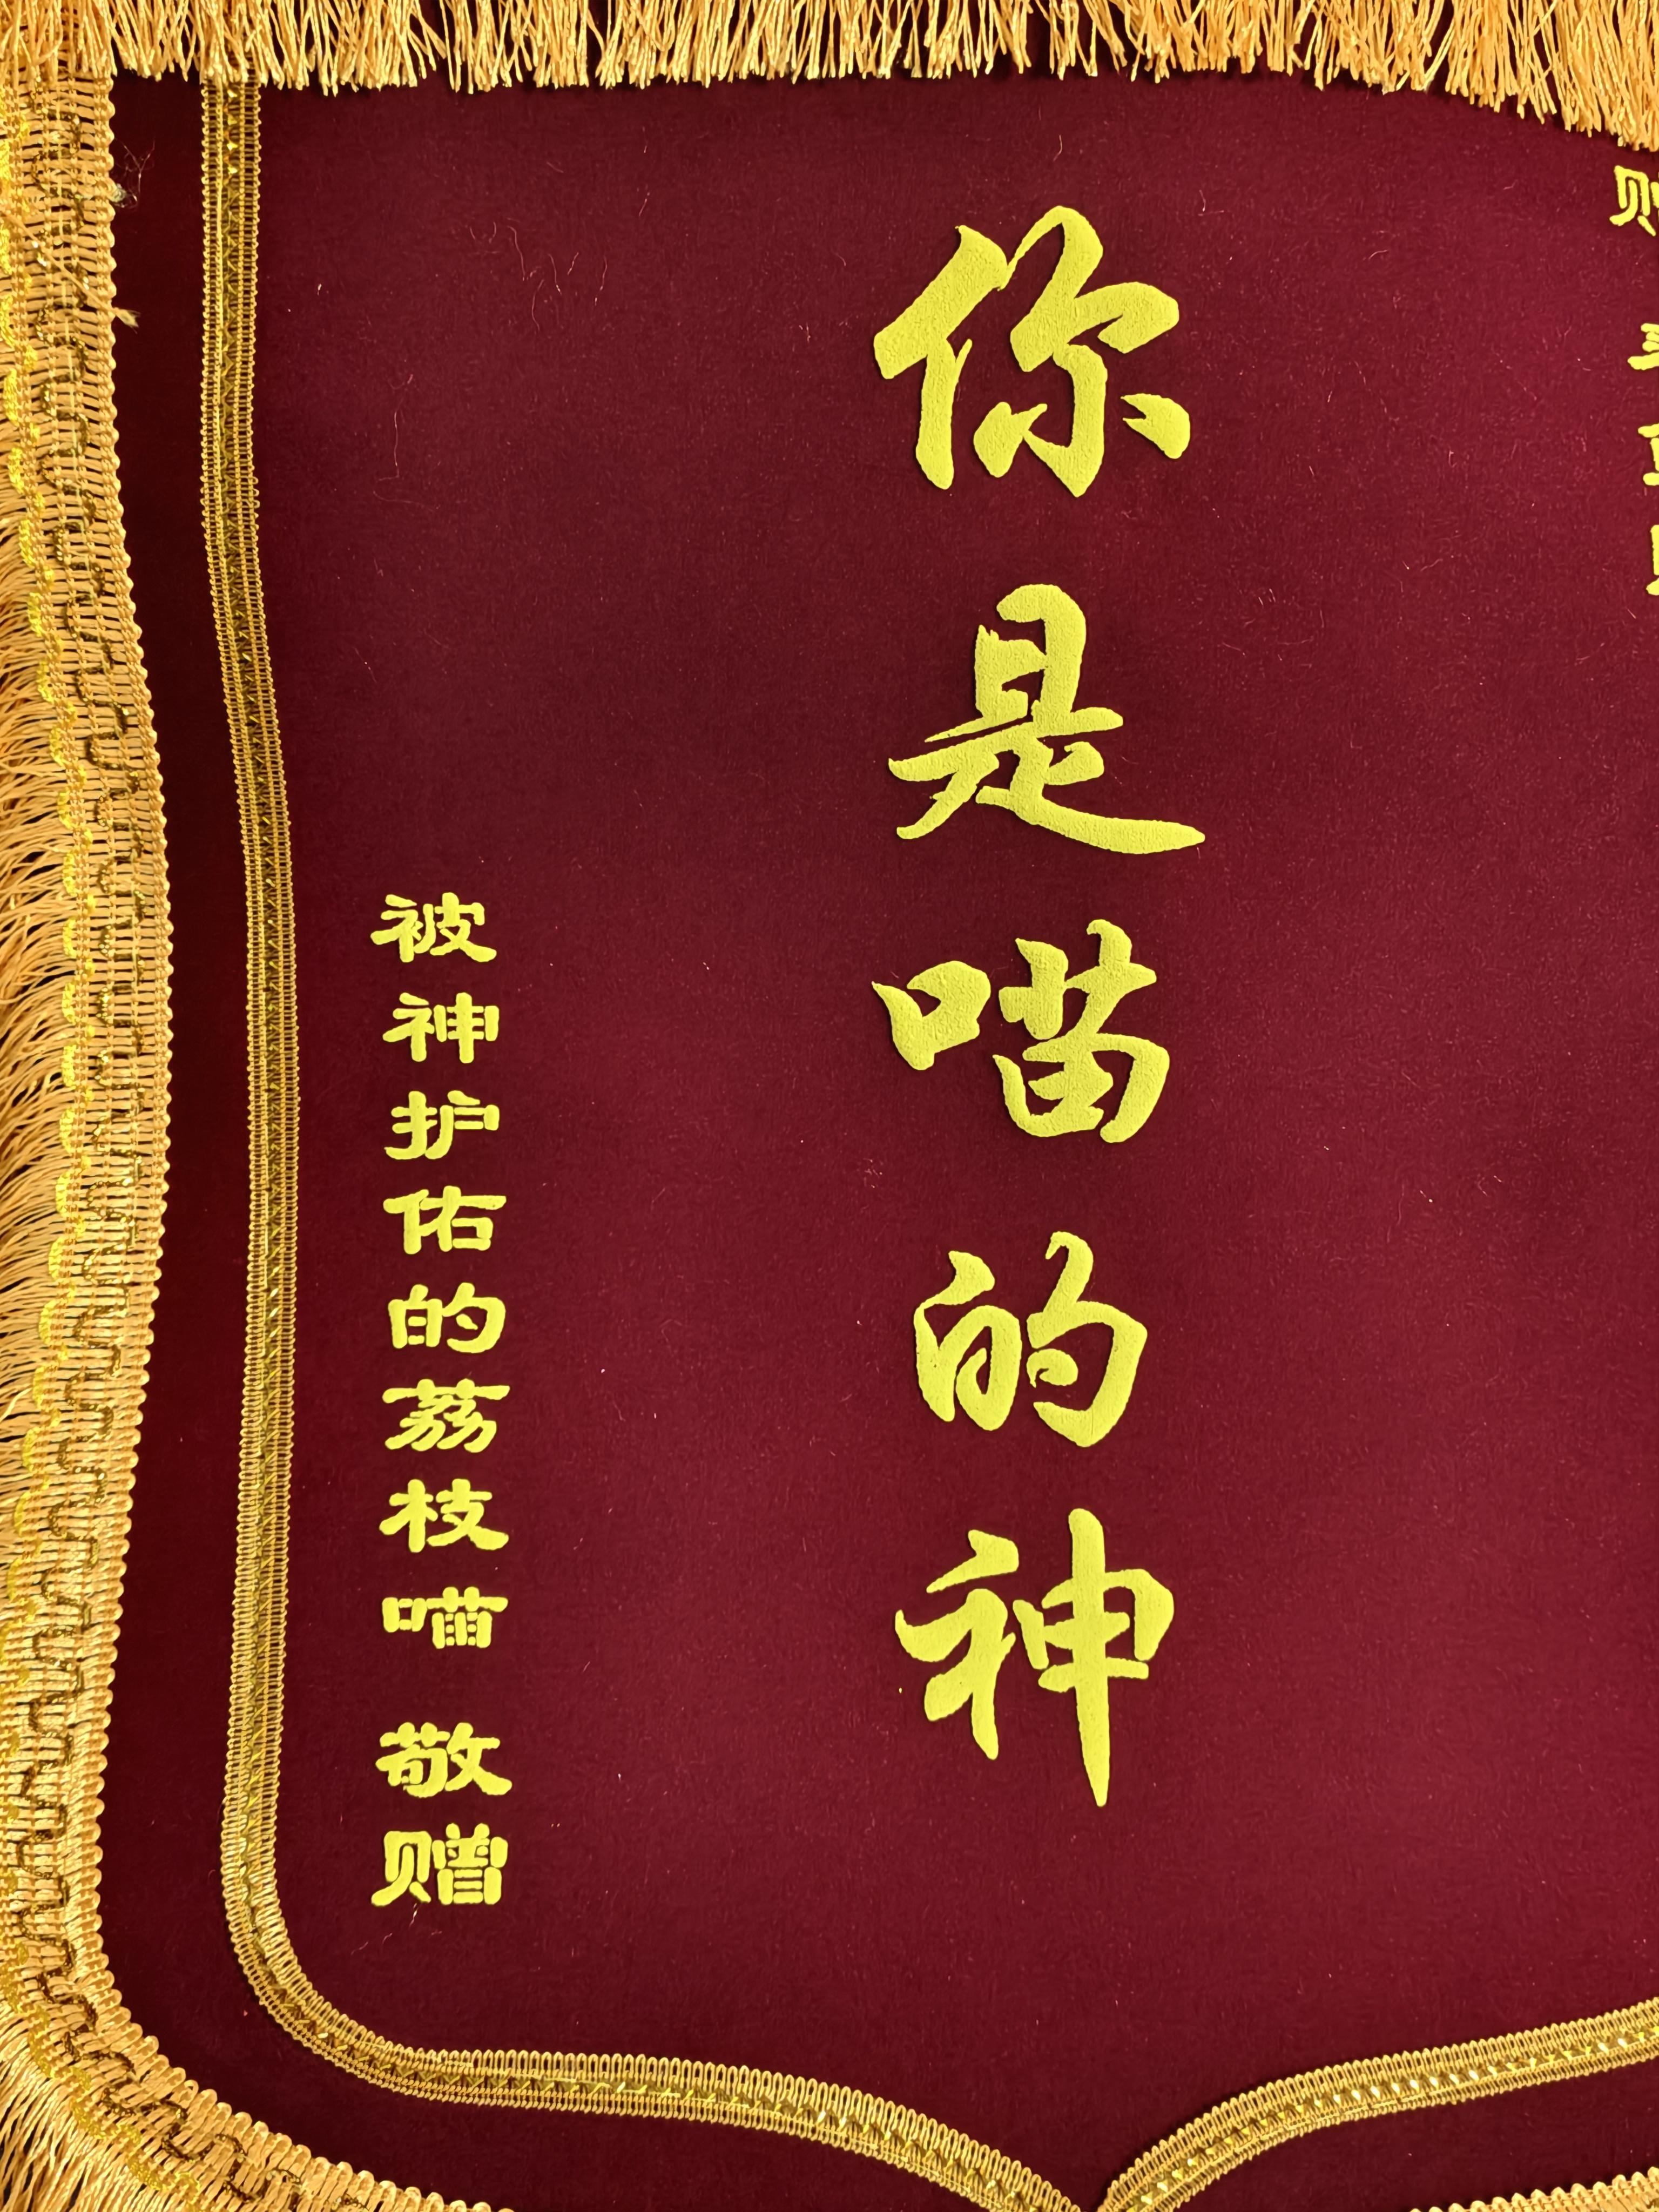 你是喵的神
被神护佑的荔枝喵 敬赠